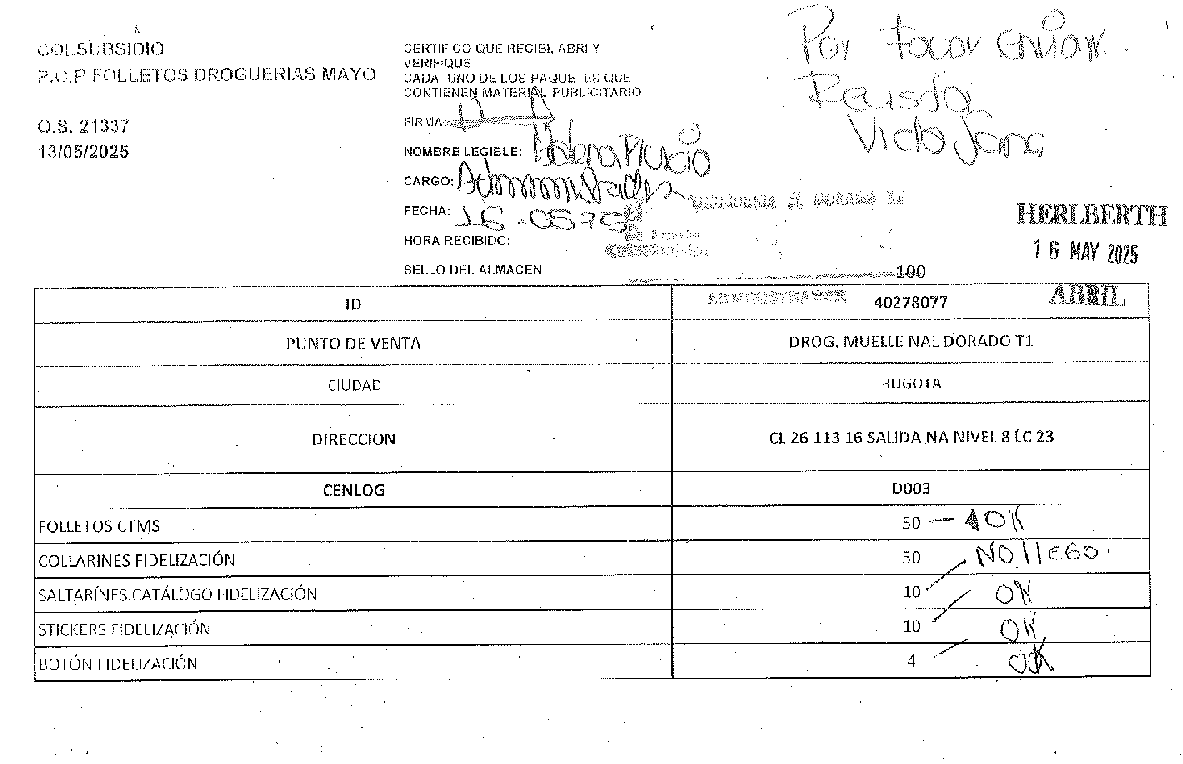 COLSUBSIDIO
P.O.P FOLLETOS DROGUERIAS MAYO
O.S. 21337
13/05/2025
CERTIFICO QUE RECIBI, ABRI Y
VERIFIQUE
CADA UNO DE LOS PAQUETES QUE
CONTIENEN MATERIAL PUBLICITARIO
FIRMA:
NOMBRE LEGIBLE:
CARGO: Administradora
FECHA: 16-05
HORA RECIBIDO:
SELLO DEL ALMACEN
Por favor enviar
Revista
HERLBERTH
16 MAY 2025
ABRIL
100
ADMINISTRADOR
ID 40278077
PUNTO DE VENTA DROG. MUELLE NAL DORADO T1
CIUDAD BOGOTA
DIRECCION CL 26 113 16 SALIDA NA NIVEL 8 LC 23
CENLOG D003
FOLLETOS CTMS 50 OK
COLLARINES FIDELIZACIÓN 50 NO llEGO.
SALTARÍNES CATÁLOGO FIDELIZACIÓN 10 OK
STICKERS FIDELIZACIÓN 10 OK
BOTÓN FIDELIZACIÓN 4 OK